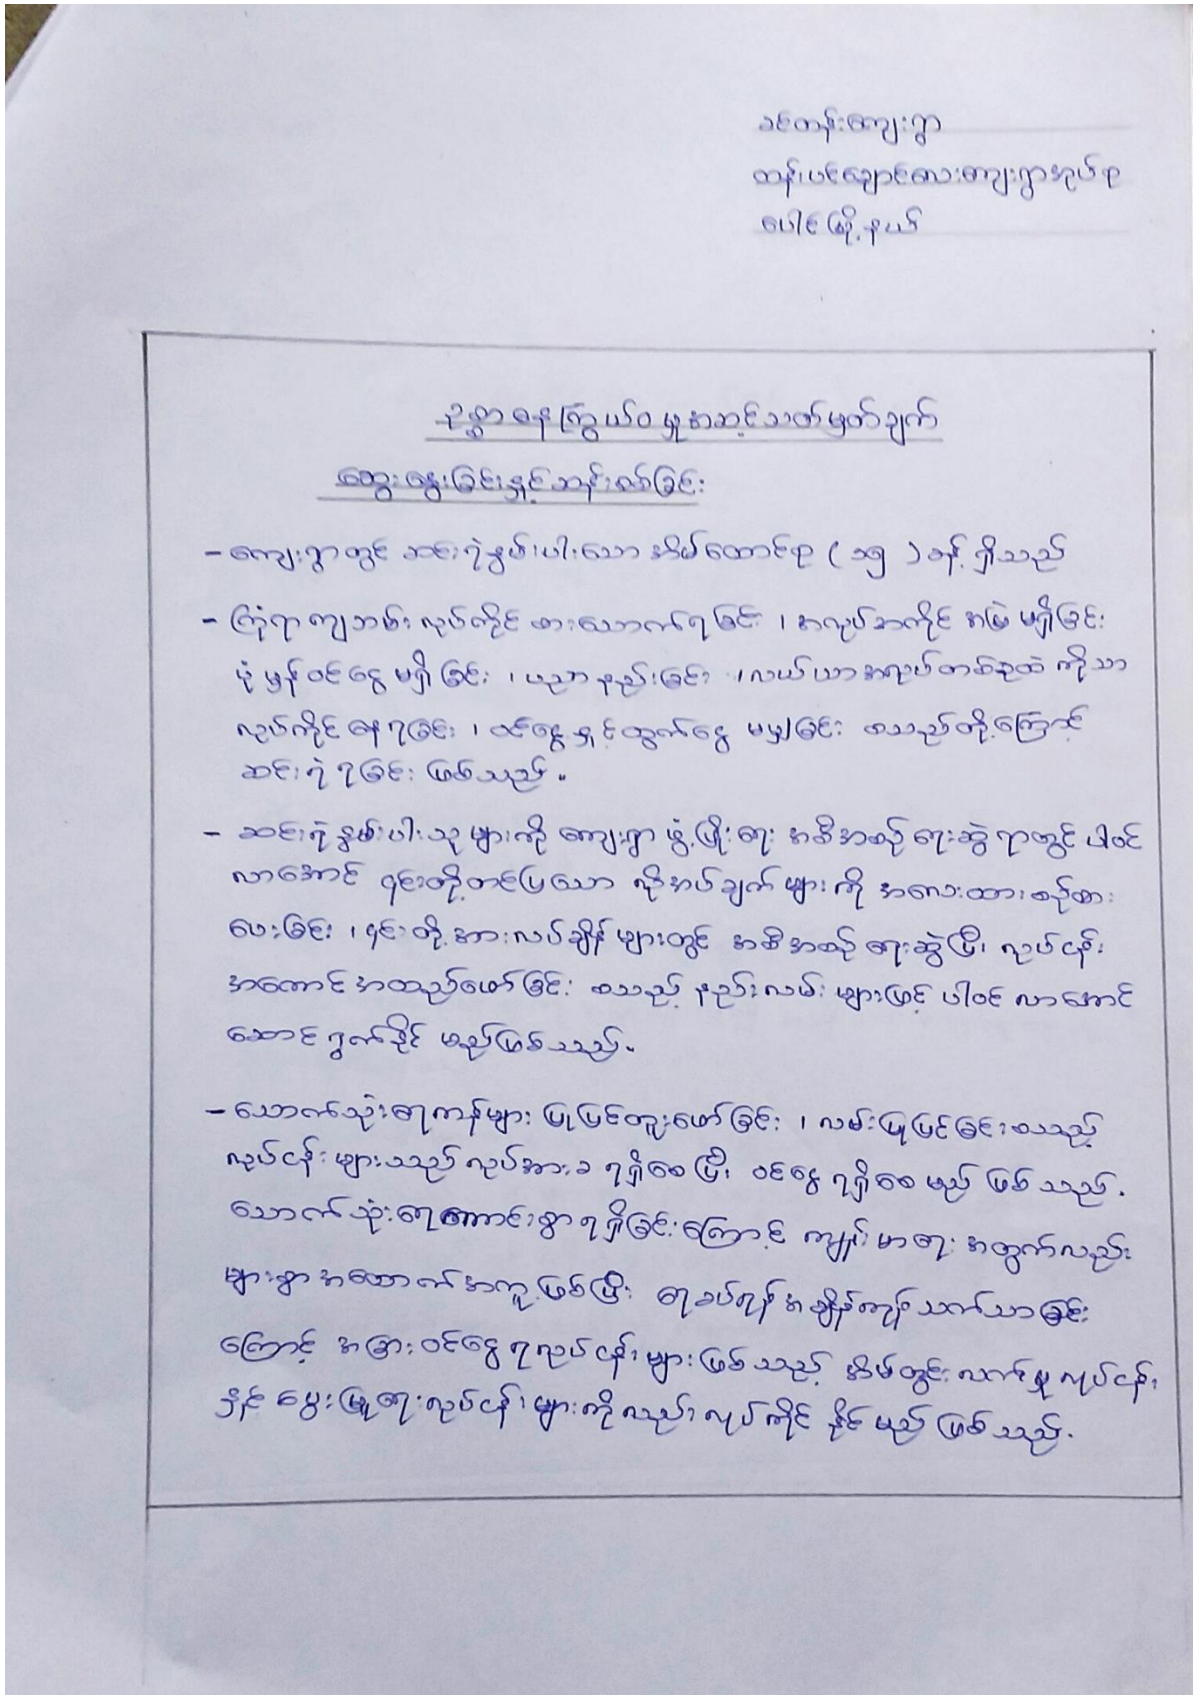 ခင်တန်းကျေးရွာ
ထန်းပင်ချောင်လေးကျေးရွာအုပ်စု
ပေါင်မြို့နယ်
ဥစ္စာဓနကြွယ်ဝမှုအဆင့်သတ်မှတ်ချက်
ဆွေးနွေးခြင်းနှင့်ဆန်းစစ်ခြင်း
- ကျေးရွာတွင် ဆင်းရဲနွမ်းပါးသော အိမ်ထောင်စု ( ၁၅ ) ခန့် ရှိသည်
- ကြုံရာကျဘမ်း လုပ်ကိုင် စားသောက်ရခြင်း ၊ အလုပ်အကိုင် အမြဲ မရှိခြင်း
ပုံမှန်ဝင်ငွေ မရှိခြင်း ၊ ပညာနည်းခြင်း ၊ လယ်ယာအလုပ်တစ်ခုထဲ ကိုသာ
လုပ်ကိုင်နေရခြင်း ၊ ဝင်ငွေနှင့်ထွက်ငွေ မမျှခြင်း စသည်တို့ကြောင့်
ဆင်းရဲရခြင်း ဖြစ်သည်။
- ဆင်းရဲနွမ်းပါးသူများကို ကျေးရွာ ဖွံ့ဖြိုးရေး အစီအစဉ် ရေးဆွဲရာတွင် ပါဝင်
လာအောင် ၎င်းတို့တင်ပြသော လိုအပ်ချက်များကို အလေးထားစဉ်းစား
ပေးခြင်း ၊ ၎င်းတို့ အားလပ်ချိန်များတွင် အစီအစဉ် ရေးဆွဲပြီး လုပ်ငန်း
အကောင်အထည်ဖော်ခြင်း စသည့် နည်းလမ်းများဖြင့် ပါဝင်လာအောင်
ဆောင်ရွက်နိုင် မည်ဖြစ်သည်။
- သောက်သုံးရေကန်များ ပြုပြင်တူးဖော်ခြင်း ၊ လမ်းပြုပြင်ခြင်းစသည့်
လုပ်ငန်းများသည် လုပ်အားခ ရရှိစေပြီး ဝင်ငွေရရှိစေမည် ဖြစ်သည်။
သောက်သုံးရေကောင်းစွာရရှိခြင်းကြောင့် ကျန်းမာရေး အတွက်လည်း
များစွာအထောက်အကူဖြစ်ပြီး ရေခပ်ရန်အချိန်ကုန်သက်သာခြင်း
ကြောင့် အခြားဝင်ငွေရလုပ်ငန်းများဖြစ်သည့် အိမ်တွင်းလက်မှုလုပ်ငန်း
နှင့် မွေးမြူရေးလုပ်ငန်းများကိုလည်း လုပ်ကိုင်နိုင်မည်ဖြစ်သည်။